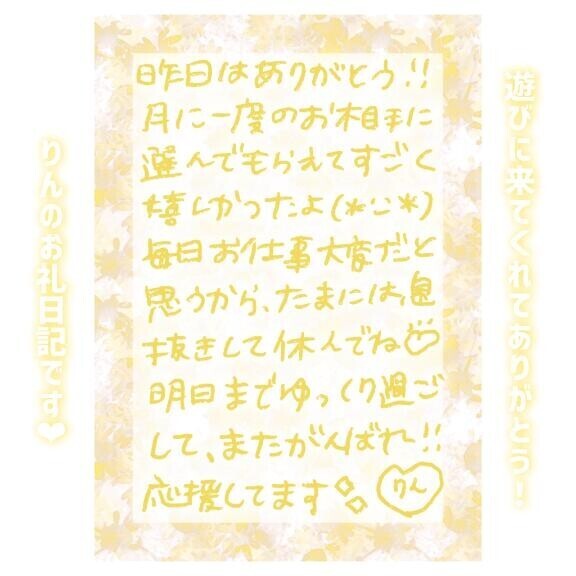 遊びに来てくれてありがとう!
昨日はありがとう!!
月に一度のお相手に
選んでもらえてすごく
嬉しかったよ(*´ω`*)
毎日お仕事大変だと
思うから、たまには息
抜きして休んでね♡
明日までゆっくり過ご
して、またがんばれ!!
応援してます
りん
りんのお礼日記です❤